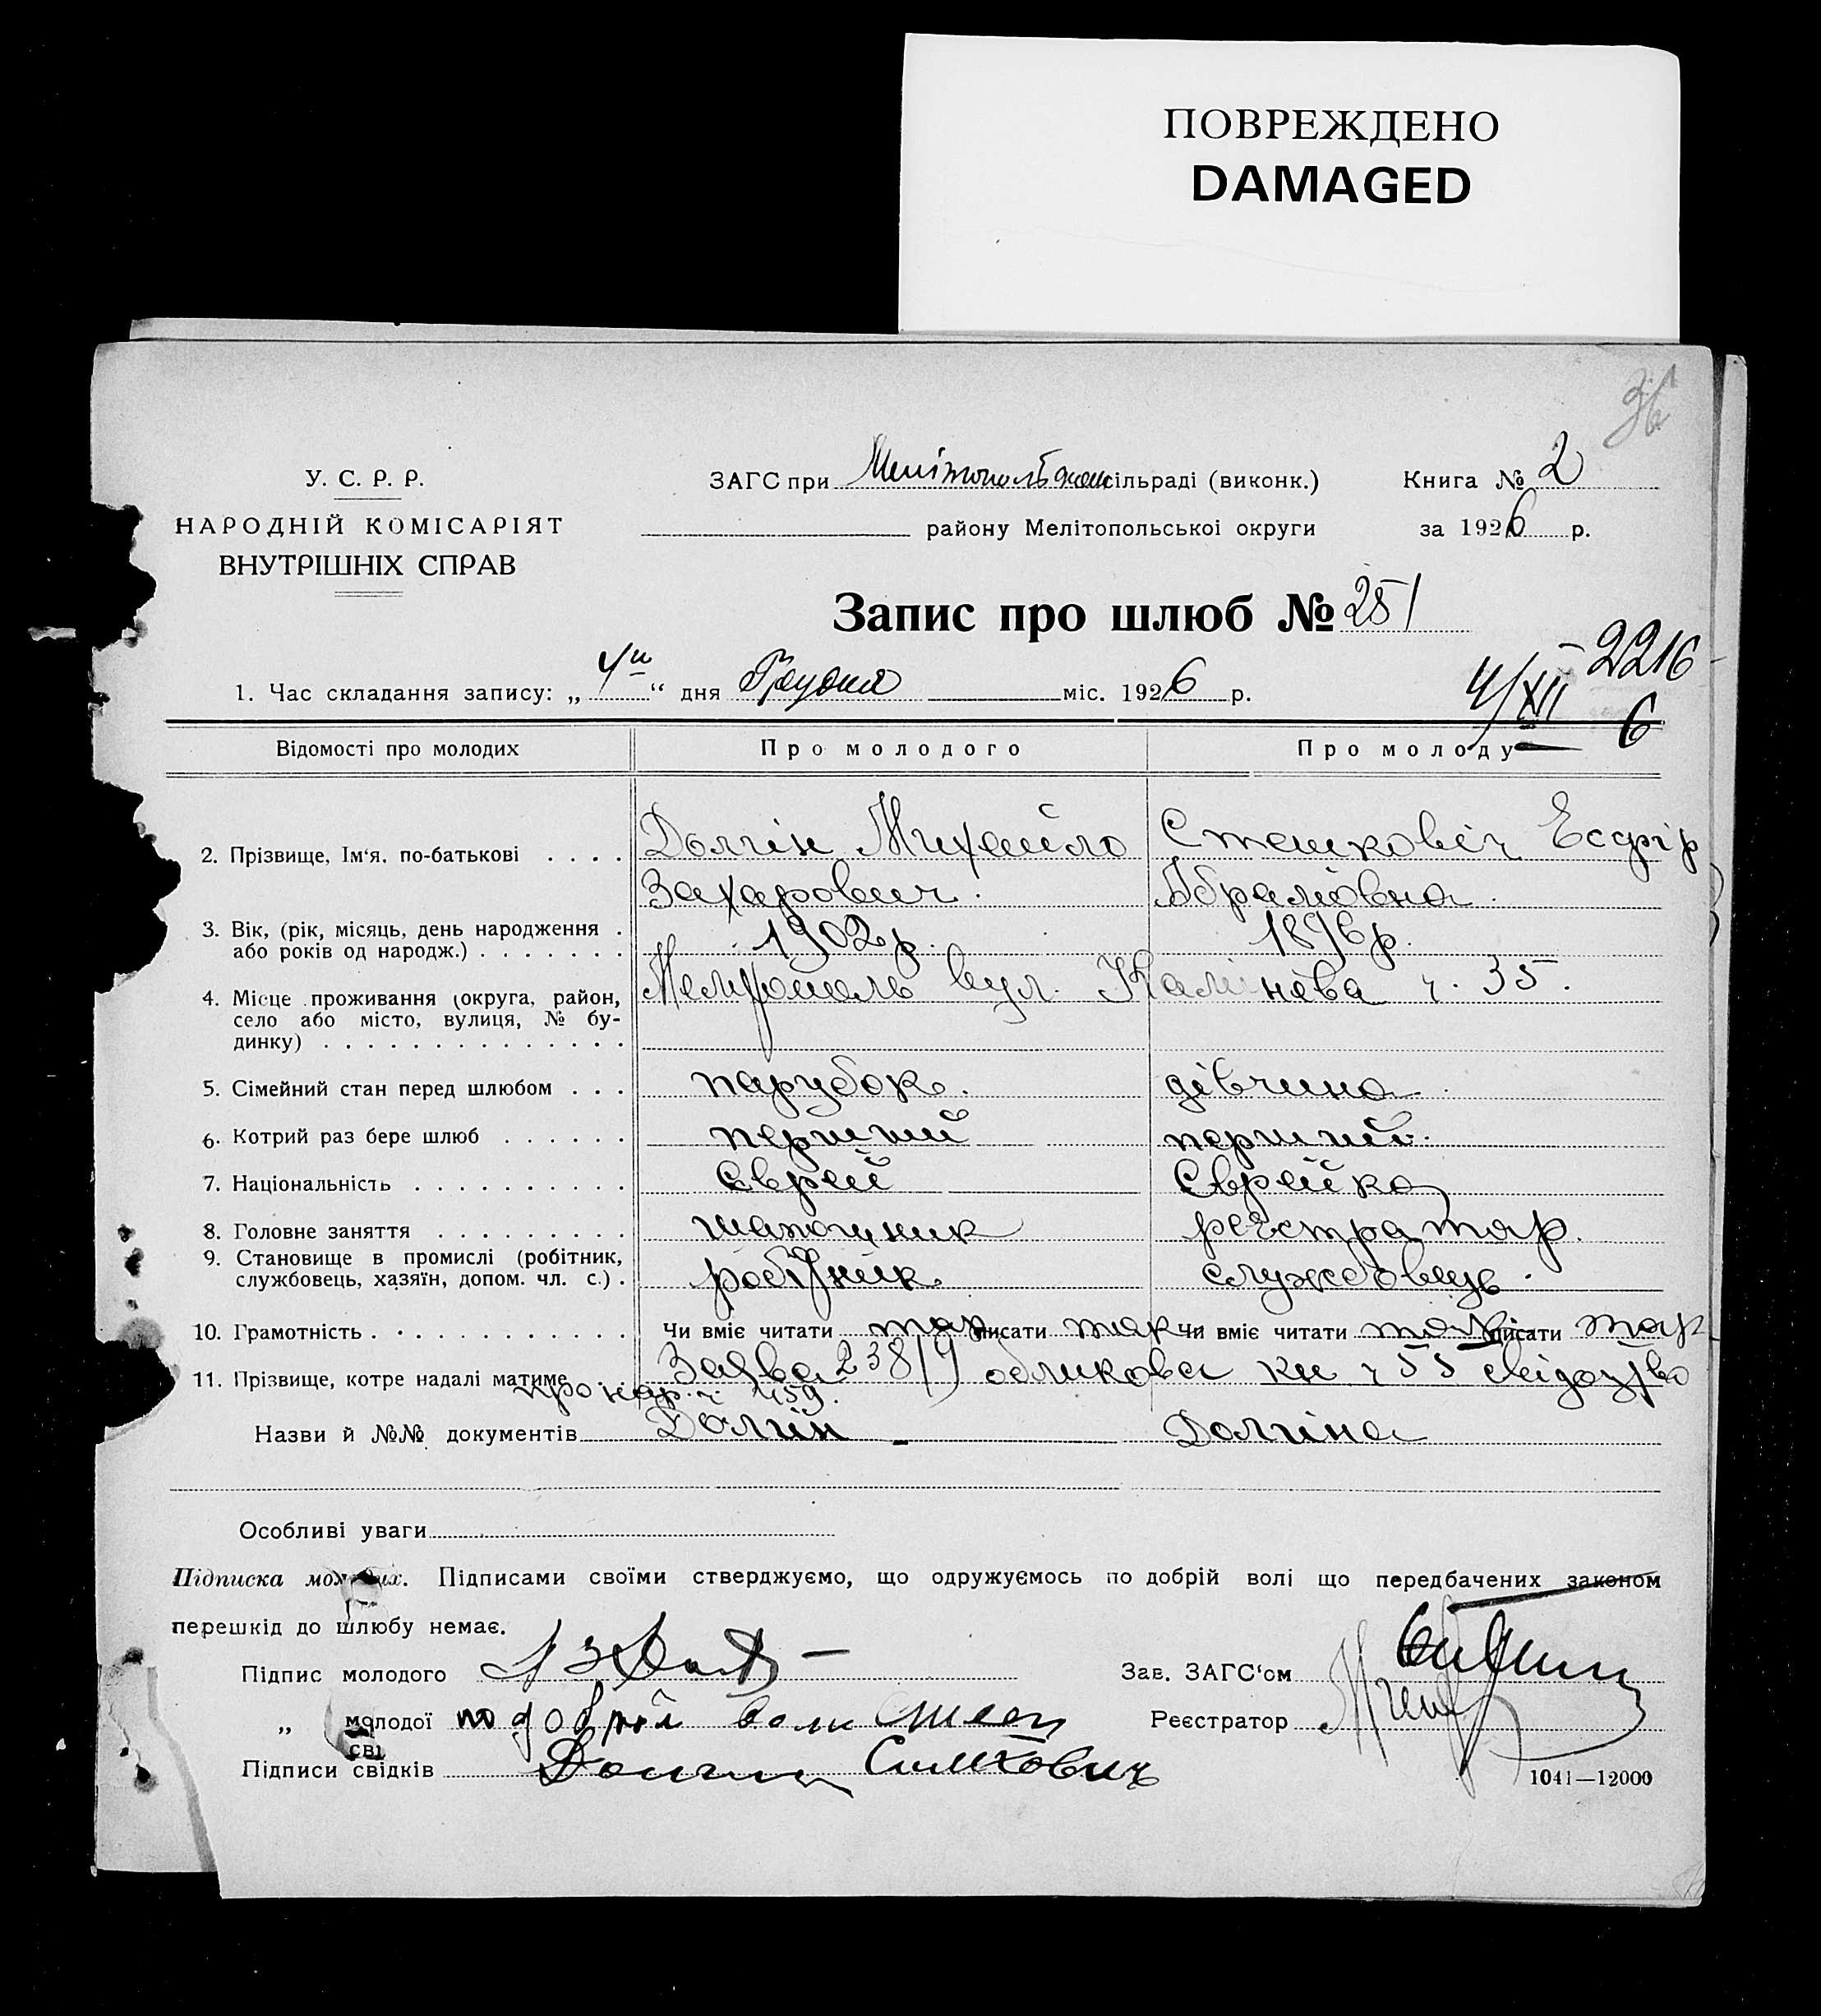 ПОВРЕЖДЕНО
DAMAGED
У. С. Р. Р.
НАРОДНІЙ КОМІСАРІЯТ
ВНУТРІШНІХ СПРАВ
ЗАГС при сільраді (виконк.)
Книга № 2
району Мелітопольської округи
за 1926 р.
Запис про шлюб № 251
2216
1. Час складання запису: „4го“ дня Грудня міс. 1926 р.
4/XII 6
Відомості про молодих
Про молодого
Про молоду
2. Прізвище, Ім'я, по-батькові . . . . Долгін Михайло
Захарович.
Сташковіч Есфір
Абрамовна.
3. Вік, (рік, місяць, день народження . або років од народж.) . . . . . . . 1902 р. 1896 р.
4. Місце проживання (округа, район, Мелітополь вул. Калінєва ч. 35.
село або місто, вулиця, № бу-
динку) . . . . . . . . . . . . . .
5. Сімейний стан перед шлюбом . . . парубок. дівчина.
6. Котрий раз бере шлюб . . . . . . перший перший.
7. Національність . . . . . . . . . . Єврей Єврейка
8. Головне заняття . . . . . . . . . шапошник реєстратор.
9. Становище в промислі (робітник,
службовець, хазяїн, допом. чл. с.) . робітник. службовець.
10. Грамотність . . . . . . . . . . . . Чи вміє читати так писати так Чи вміє читати так писати так
11. Прізвище, котре надалі матиме Заява 238/4 обликова кн ч 55 свідоцтво
про нар. ч 459.
Назви й №№ документів Долгін Долгіна
Особливі уваги
Підписка молодих. Підписами своїми стверджуємо, що одружуємось по добрій волі що передбачених законом
перешкід до шлюбу немає.
Підпис молодого
Зав. ЗАГС'ом
„ молодої по добрій воли
Реєстратор
сві
Підписи свідків
1041—12000